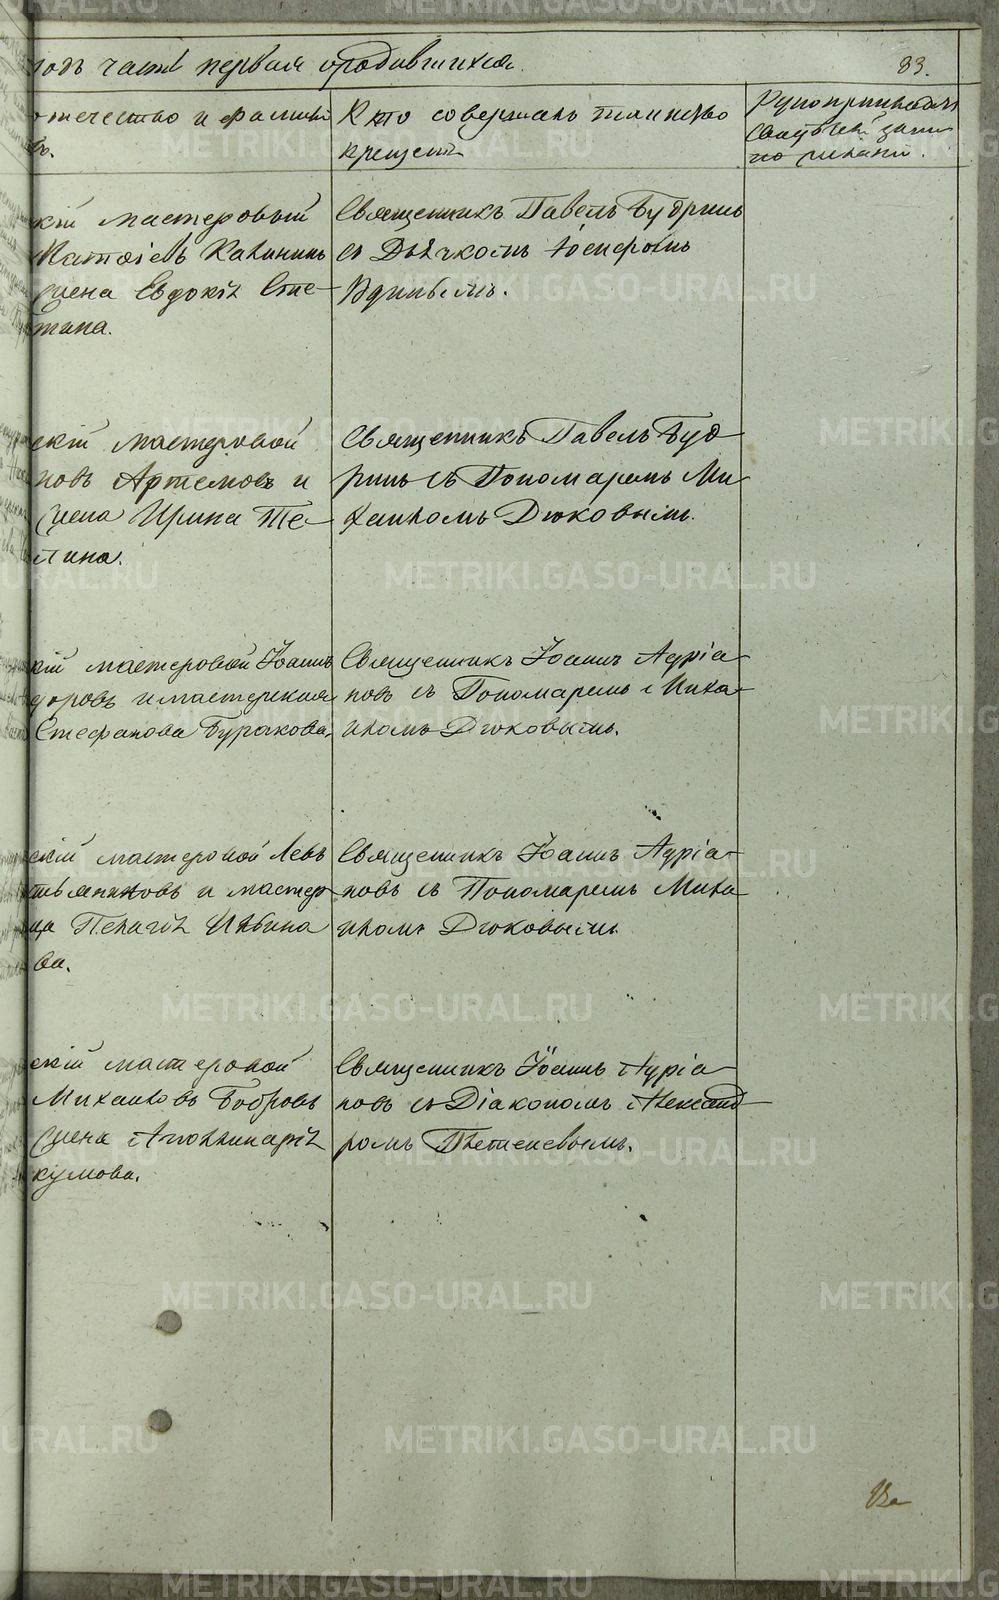 годъ часть первая о родившихся.
83.
отечество и фамилія
въ.
Кто совершалъ таинство
крещенія
Рукоприкладство
свидѣтелей записи
по желанію.
кій мастеровый
Матѳіевъ Калининъ
жена Евдокія Сте-
пана.
Священникъ Павелъ Будринъ
съ Дьячкомъ Іосифомъ
скій мастеровой
новъ Артемовъ и
жена Ирина Те-
лина.
Священникъ Павелъ Буд-
ринъ съ Пономаремъ Ми-
хаиломъ Дюковымъ.
кій мастеровый Іоаннъ
доровъ и мастерская
Стефанова Буракова.
Священникъ Іоаннъ Адріа-
новъ съ Пономаремъ Миха-
иломъ Дюковымъ.
скій мастеровой Левъ
и мастер
ца Пелагія
ва.
Священникъ Іоаннъ Адріа-
новъ съ Пономаремъ Миха-
иломъ Дюковымъ
скій мастеровой
Михаиловъ Бобровъ
жена Аполлинарія
кумова.
Священникъ Іоаннъ Адріа-
новъ съ Діакономъ Александ-
ромъ
METRIKI.GASO-URAL.RU